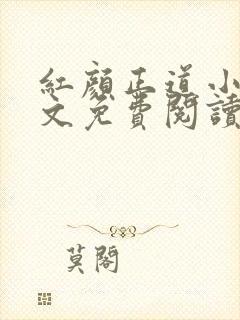 紅顏正道小
文免費閱讀
莫閣